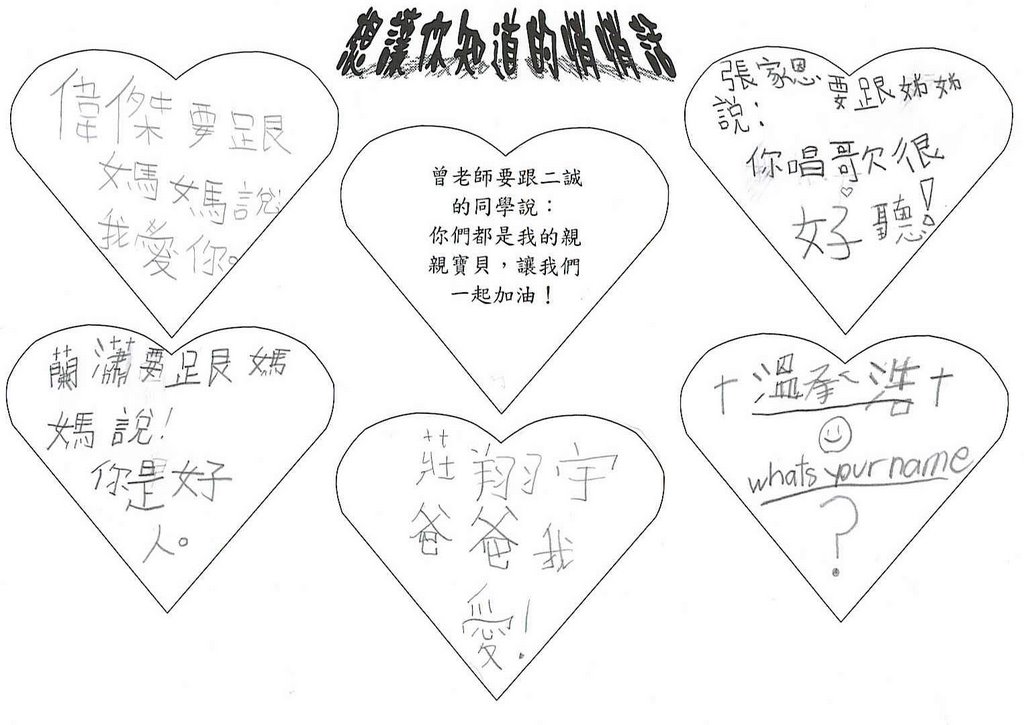 想讓你知道的悄悄話
偉傑要跟
媽媽說
我愛你。
曾老師要跟二誠
的同學說：
你們都是我的親
親寶貝，讓我們
一起加油！
張家恩要跟姊姊
說：
你唱歌很
好聽！
蘭瀟要跟媽
媽說！
你是好
人。
莊翔宇
爸爸我
愛！
溫承浩
whats your name
?